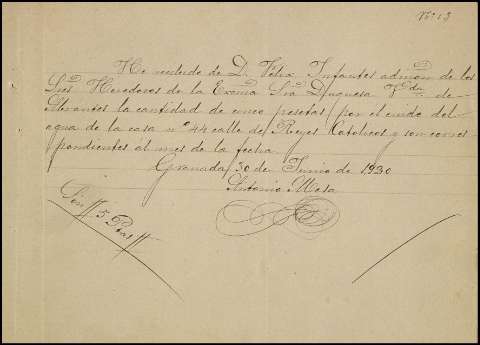 Nº 13
He recibido de D. Félix Infantes admon de los
Sres Herederos de la Excma Sra Duquesa Vda de
Abrantes la cantidad de cinco pesetas por el cuido del
agua de la casa nº 44 calle de Reyes Católicos y son corres-
pondientes al mes de la fecha
Granada 30 de Junio de 1920
Antonio Mesa
Son 5 Ptas